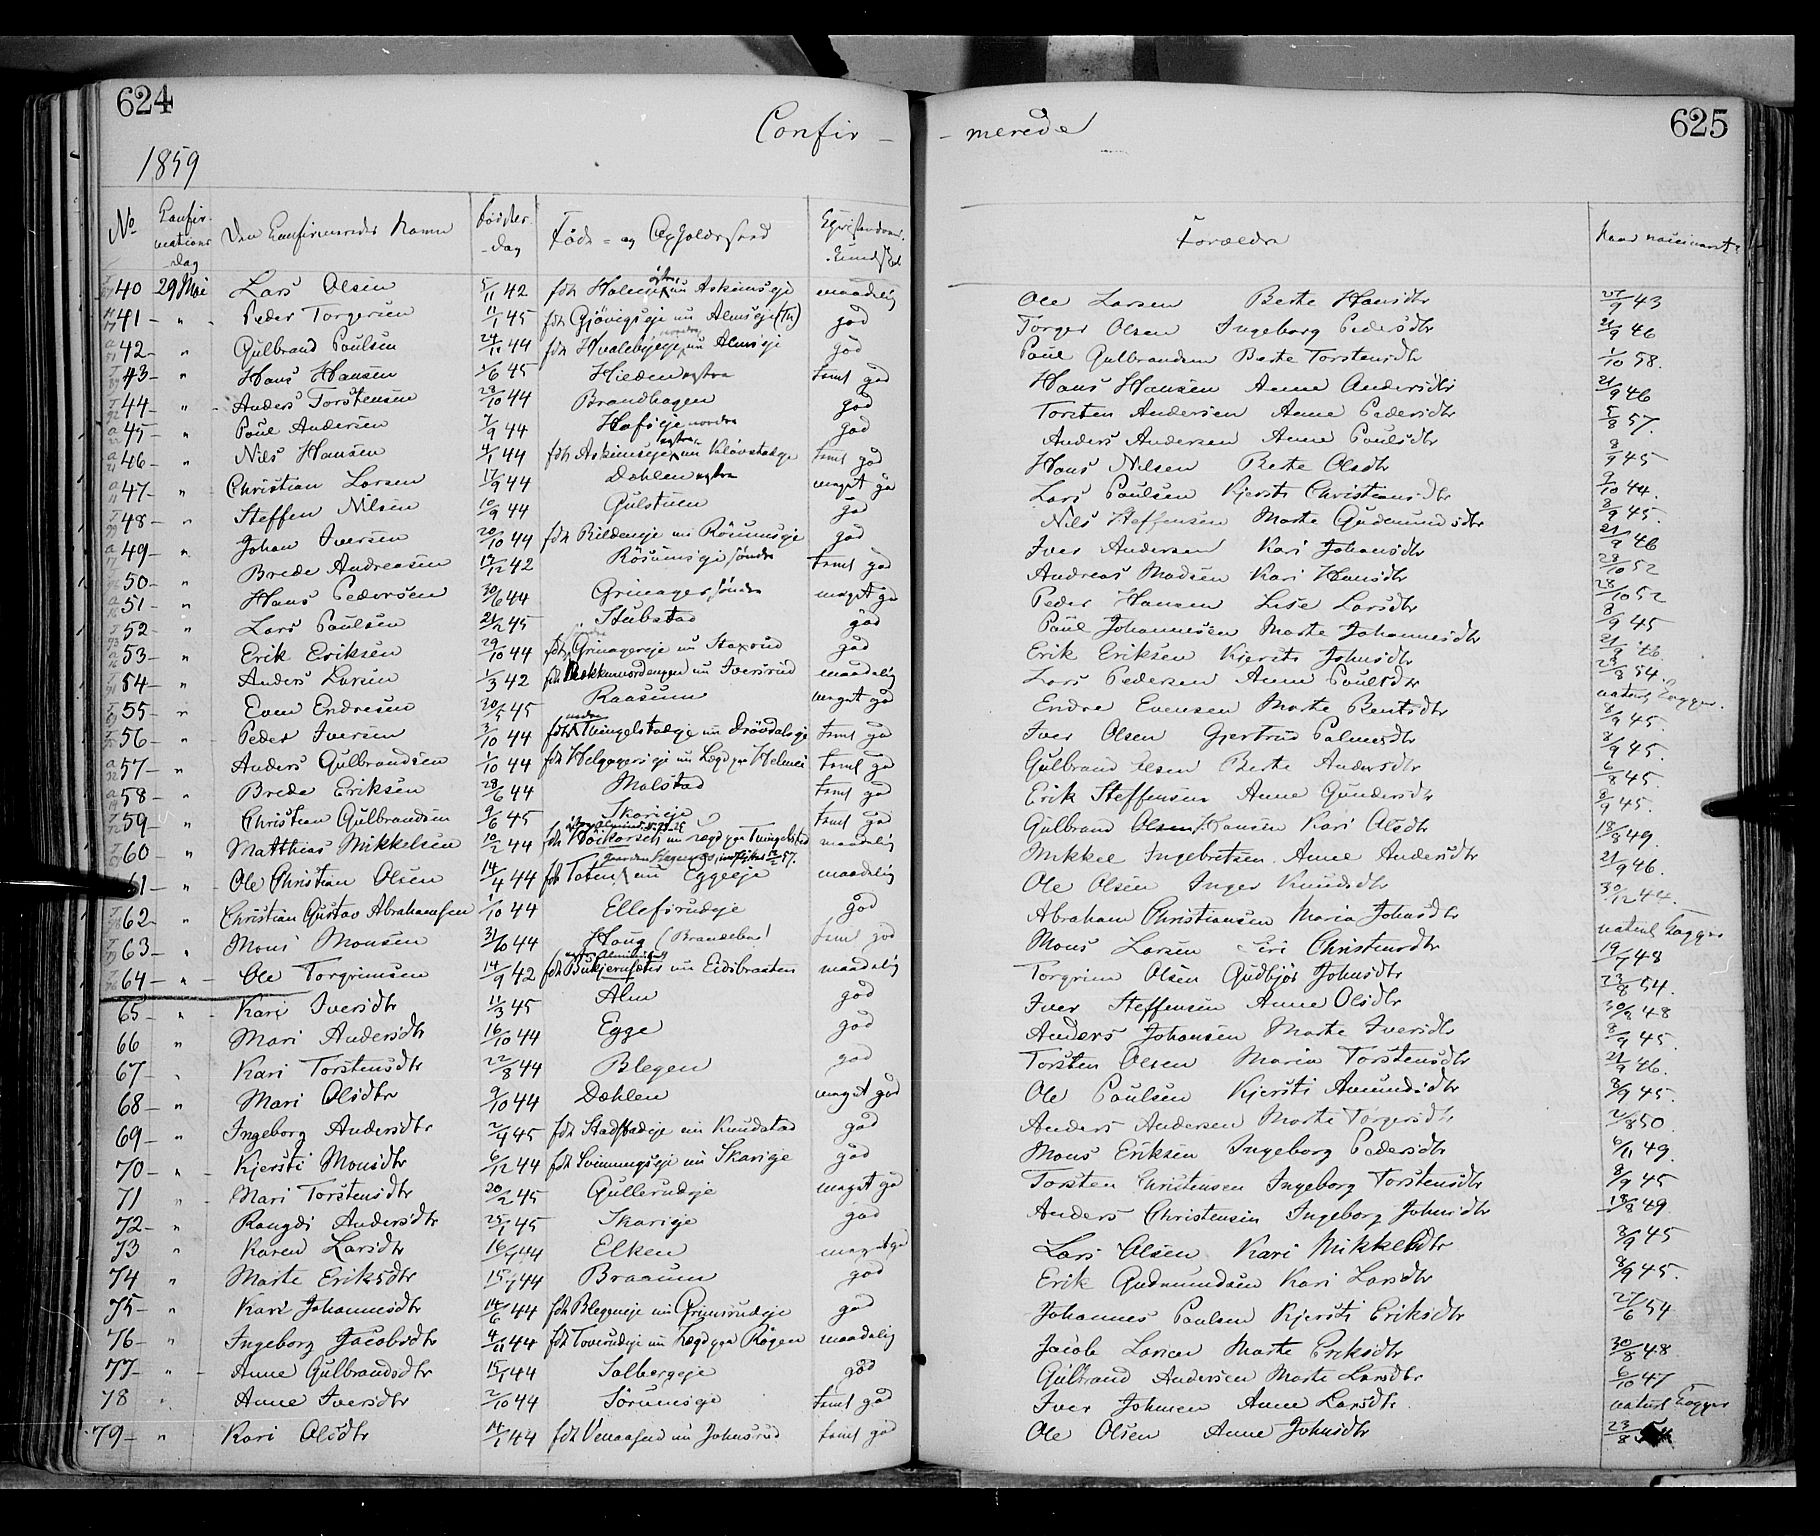 624
Confir-
-merede
625
1859
No
Confirmations dag
Den Confirmeredes Navn
Fødsels-dag
Føde- og Opholdssted
Christendoms-Kundskab
Forældre
40 29 Mai Lars Olsen 5/11 42 maadelig Ole Larsen Berte Hansdtr 27/9 43
41 " Peder Torgersen 11/1 45 fdt Gjövigseje nu Almseje god Torger Olsen Ingeborg Pedersdtr 21/9 46
42 " Gulbrand Paulsen 24/11 44 fdt Hvalebyeje nordre nu Almseje god Paul Gulbrandsen Berte Torstensdtr 1/10 58.
43 " Hans Hansen 45 Hilden østre temt god Hans Hansen Anne Andersdtr 21/9 46
44 " Anders Torstensen 28/10 44 Brandhagen god Torsten Andersen Anne Pedersdtr 5/8 57.
45 " Paul Andersen 7/9 44 Hofseje nordre god Anders Andersen Anne Paulsdtr
46 " Nils Hansen 4/1 44 fdt Askimseje østre nu Kløvstadeje temt god Hans Nilsen Berte Olsdtr 8/9 45
47 " Christian Larsen 17/9 44 Dæhlen østre meget go Lars Paulsen Kjersti Christiansdtr 7/10 44.
48 " Steffen Nilsen 10/9 44 Gulstuen go Nils Steffensen Marte Gudmundsdtr 8/9 45.
49 " Johan Iversen 20/10 44 god Iver Andersen Kari Johansdtr 21/9 46
50 " Brede Andreasen 12/12 42 Rösumseje søndre temt god Andreas Madsen Kari Hansdtr 23/10 52
51 " Hans Pedersen 30/6 44 Grinager søndre meget go Peder Hansen Lise Larsdtr 28/10 52
52 " Lars Paulsen 21/2 45 Stubstad god Paul Johannesen Marte Johannesdtr 8/9 45
53 " Erik Eriksen 29/10 44 fdt Grinagereje nu Staxrud god Erik Eriksen Kjersti Johnsdtr 21/9 46.
54 " Anders Larsen 1/3 42 nu Iversrud maadelig Lars Pedersen Anne Paulsdtr 23/8 54.
55 " Even Endresen 20/5 45 Raasum meget go Endre Evensen Marte Bentsdtr naturl Kopper.
56 " Peder Iversen 3/10 44 fdt Tingelstadeje nedre nu Drövdalseje temt go Iver Olsen Gjertrud Palmesdtr 8/9 45.
57 " Anders Gulbrandsen 1/10 44 fdt Helgagerseje nu Lægd paa Helmei temt go Gulbrand Olsen Berte Andersdtr 8/9 45.
58 " Brede Eriksen 28/6 44 Molstad temt god Erik Steffensen Anne Gundersdtr 6/8 45.
59 " Christian Gulbrandsen 9/6 45 Skarieje temt go Gulbrand Hansen Kari Olsdtr 8/9 45.
60 " Matthias Mikkelsen 10/2 44 nu Lægd paa Tingelstad maadelig Mikkel Ingebretsen Anne Andersdtr 18/8 49.
61 " Ole Christian Olsen 14/4 44 fdt Toten nu Eggeeje maadelig Ole Olsen Inger Knudsdtr 21/9 46.
62 " Christian Gustav Abrahamsen 1/10 44 Ellefsrudeje god Abraham Christiansen Maria Johnsdtr 30/12 44.
63 " Mons Monsen 31/10 44 Houg (Brandebu) temt god Mons Larsen Siri Christensdtr naturl Kopper
64 " Ole Torgrimsen 14/9 42 nu Eidsbraaten maadelig Torgrim Olsen Gudbjör Johnsdtr 19/7 48
65 " Kari Iversdtr 11/3 45 Alm god Iver Steffensen Anne Olsdtr 23/8 54.
66 " Mari Andersdtr 16/10 44 Egge god Anders Johansen Marte Iversdtr 48
67 " Kari Torstensdtr 22/8 44 Blegen god Torsten Olsen Maria Torstensdtr 8/9 45.
68 " Mari Olsdtr 9/10 44 Dæhlen meget god Ole Paulsen Kjersti Amundsdtr 21/9 46.
69 " Ingeborg Andersdtr 2/4 45 fdt Stadstadeje nu Knudstad god Anders Andersen Marte Torgersdtr 8/9 45.
70 " Kjersti Monsdtr 6/12 44 fdt Svinningseje nu Skarieje god Mons Eriksen Ingeborg Pedersdtr 2/8 50.
71 " Mari Torstensdtr 20/2 45 Gullerudeje meget go Torsten Christensen Ingeborg Torstensdtr 6/11 49.
72 " Rangdi Andersdtr 25/1 45 Skarieje god Anders Christensen Ingeborg Johnsdtr 8/9 45
73 " Karen Larsdtr 16/7 44 Elken meget go Lars Olsen Kari Mikkelsdtr 18/8 49.
74 " Marte Eriksdtr 15/7 44 Braaum god Erik Gudmundsen Kari Larsdtr 8/9 45
75 " Kari Johannesdtr 14/6 44 fdt Blegeneje nu Grimsrudeje god Johannes Paulsen Kjersti Eriksdtr 8/9 45.
76 " Ingeborg Jacobsdtr 4/11 44 fdt Toverudeje nu Lægd paa Rögen maadelig Jacob Larsen Marte Eriksdtr 27/6 54
77 " Anne Gulbrandsdtr 15/1 44 Solbergeje god Gulbrand Andersen Marte Larsdtr 30/8 48.
78 " Anne Iversdtr 2/10 44 Sörumseje temt god Iver Johnsen Anne Larsdtr 6/10 47
79 " Kari Olsdtr 14/1 44 nu Johnsrud temt god Ole Olsen Anne Johnsdtr naturl Kopper
23/8